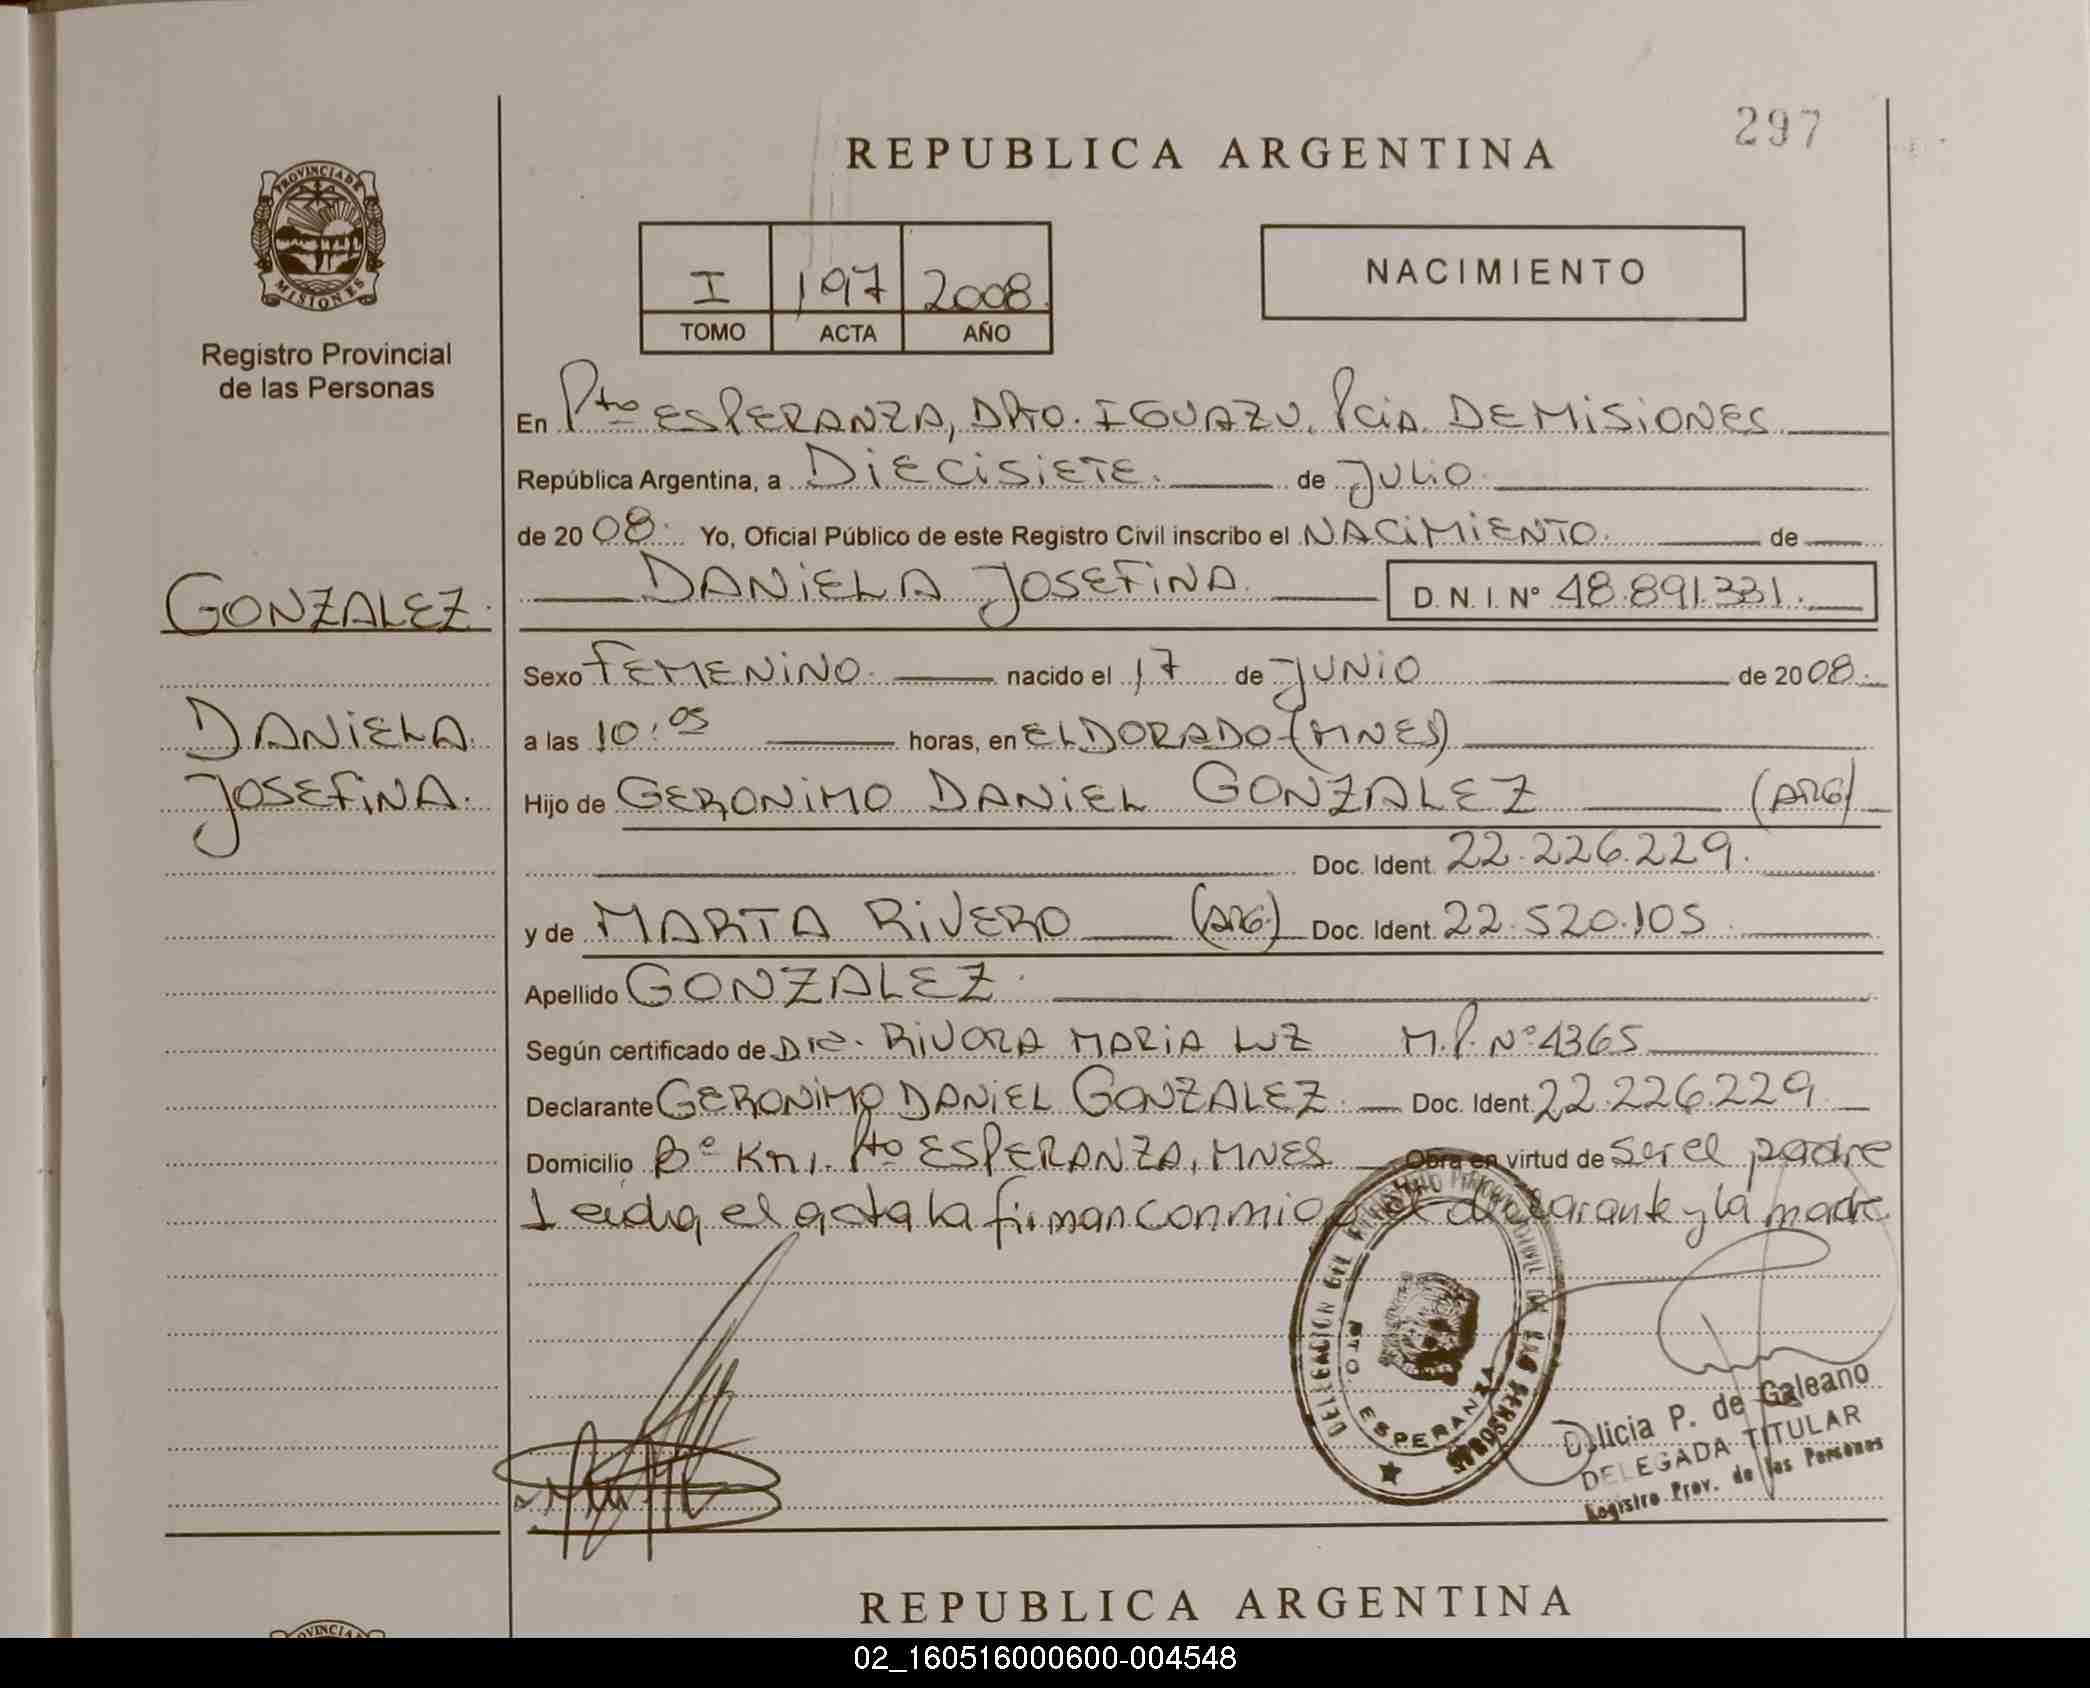 297
REPUBLICA ARGENTINA
PROVINCIA DE
MISIONES
Registro Provincial
de las Personas
I 197 2008
TOMO ACTA AÑO
NACIMIENTO
En Pto ESPERANZA, DPTO. IGUAZU. Pcia. DE MISIONES
República Argentina, a DIECISIETE. de JULIO.
de 2008. Yo, Oficial Público de este Registro Civil inscribo el NACIMIENTO. de
GONZALEZ.
DANIELA JOSEFINA. D. N. I. Nº 48.891.331.
Sexo FEMENINO. nacido el 17 de JUNIO de 2008.
DANIELA.
JOSEFINA.
a las 10:05 horas, en ELDORADO-(MNES)
Hijo de GERONIMO DANIEL GONZALEZ (ARG)
Doc. Ident. 22.226.229.
y de MARTA RIVERO (ARG.) Doc. Ident. 22.520.105
Apellido GONZALEZ.
Según certificado de Dra. RIVORA MARIA LUZ M.P. Nº 4365
Declarante GERONIMO DANIEL GONZALEZ. Doc. Ident. 22.226.229
Domicilio Bº Km 1. Pto ESPERANZA, MNES Obra en virtud de ser el padre
Leida el acta la firman conmigo el declarante y la madre.
DELEGACION DEL REGISTRO PROVINCIAL DE LAS PERSONAS
PTO ESPERANZA
Delicia P. de Galeano
DELEGADA TITULAR
Registro Prov. de las Personas
REPUBLICA ARGENTINA
02_160516000600-004548